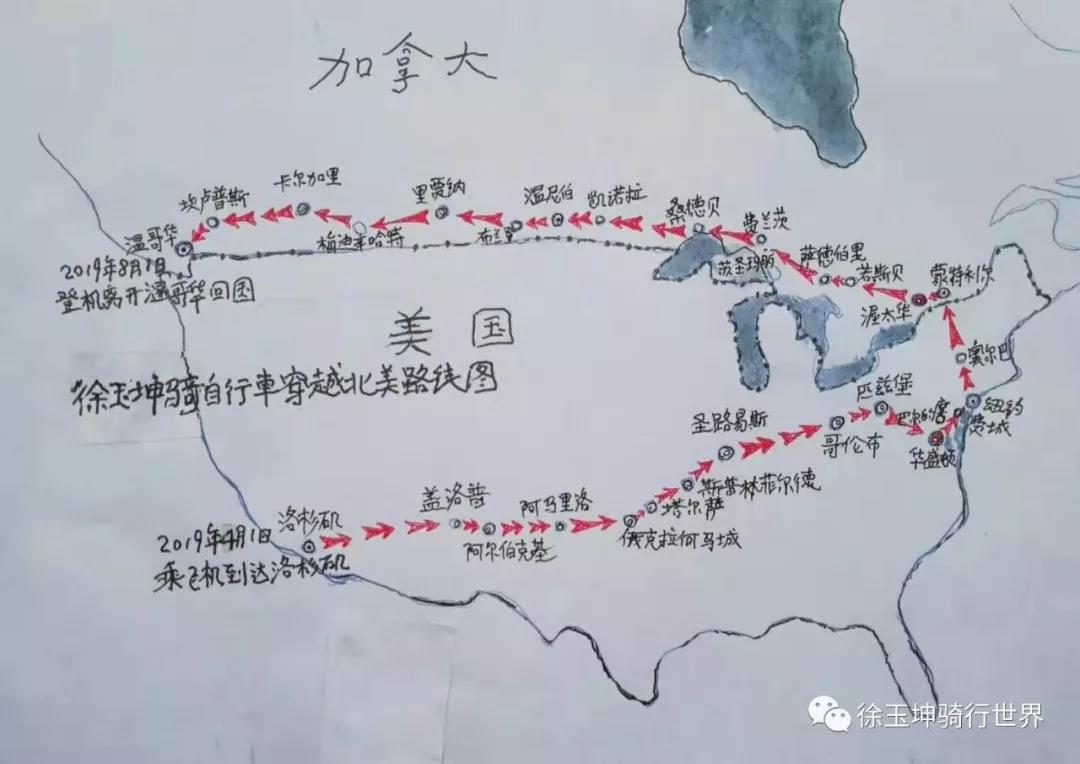 加拿大
卡尔加里
坎卢普斯
里贾纳
温尼伯
凯诺拉
桑德贝
费兰茨
温哥华
布兰登
苏圣玛丽
萨德伯里
若斯贝
蒙特利尔
2019年8月1日
登机离开温哥华回国
渥太华
美国
奥尔巴
徐玉坤骑自行車穿越北美路线图
匹兹堡
巴尔的摩
纽约
费城
圣路易斯
哥伦布
华盛顿
斯普林菲尔德
盖洛普
阿马里洛
塔尔萨
洛杉矶
阿尔伯克基
俄克拉何马城
2019年4月1日
乘飞机到达洛杉矶
徐玉坤骑行世界